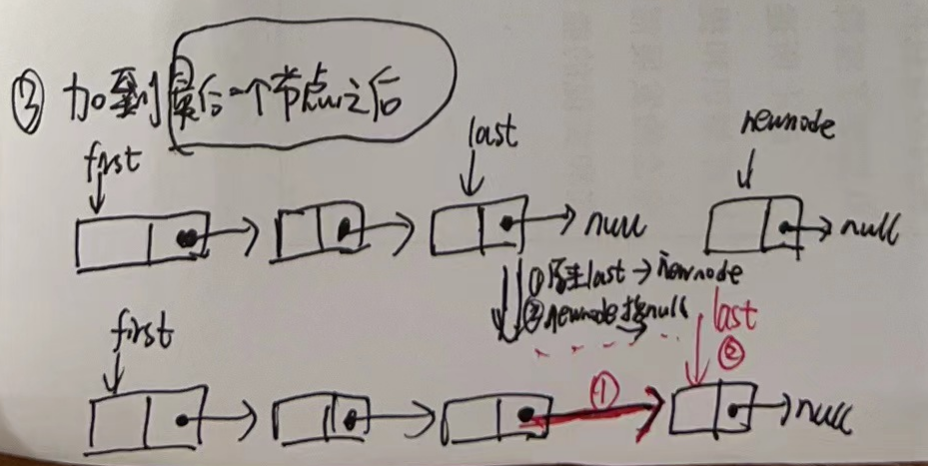 ③ 加到最后一个节点之后
first
last
newnode
null
null
①原来last→newnode
②newnode指null
first
last
①
②
null